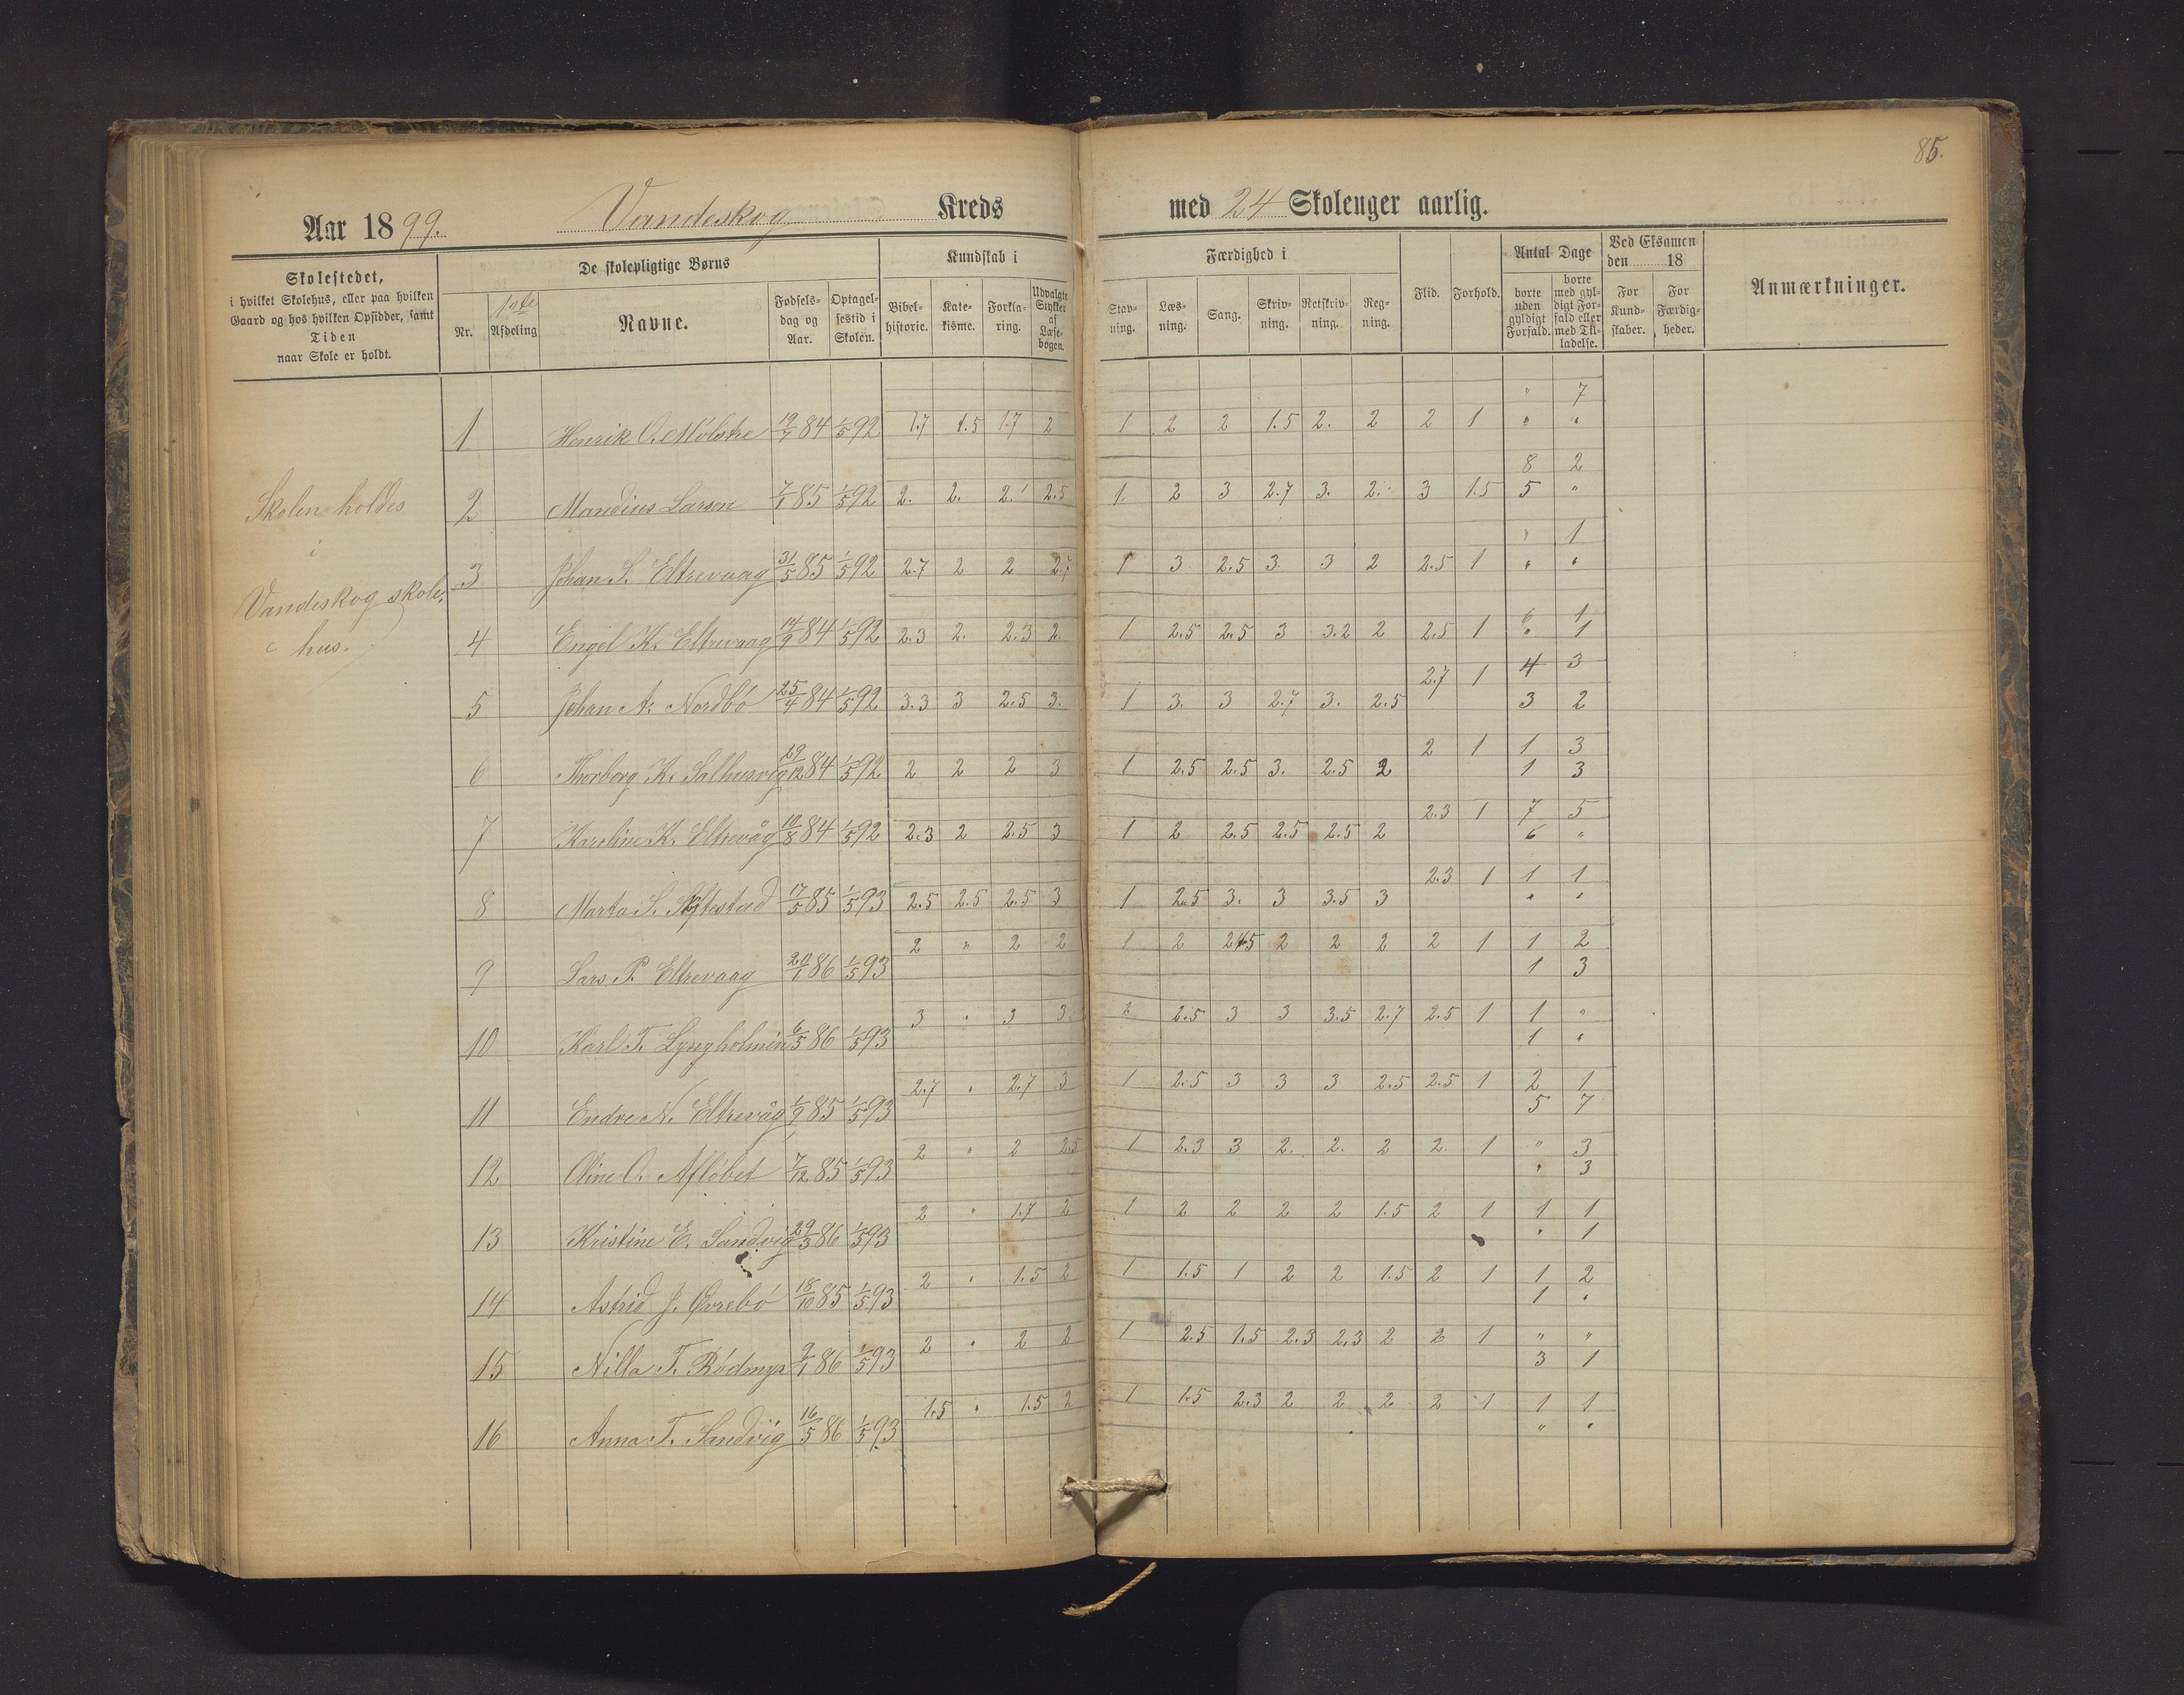 85.
Aar 1899. Vandeskog Kreds med 24 Skolenger aarlig.
Skolestedet,
i hvilket Skolehus, eller paa hvilken
Gaard og hos hvilken Opsidder, samt
Tiden
naar Skole er holdt.
De skolepligtige Børns
Nr.
1ste
Afdeling
Navne.
Fødsels-
dag og
Aar.
Optagel-
sestid i
Skolen.
Kundskab i
Bibel-
historie.
Kate-
kisme.
Forkla-
ring.
Udvalgte
Stykker
af
Læse-
bogen.
Færdighed i
Stav-
ning.
Læs-
ning.
Sang.
Skriv-
ning.
Retskriv-
ning.
Reg-
ning.
Flid.
Forhold.
Antal Dage
borte
uden
gyldigt
Forfald.
borte
med gyl-
digt For-
fald eller
med Til-
ladelse.
Ved Eksamen
den 18
For
Kund-
skaber.
For
Færdig-
heder.
Anmærkninger.
Skolen holdes
i
Vandeskog skole,
hus.
" 7
1 Henrik O. Mølstre 19/7 84 1/5 92 1.7 1.5 1.7 2 1 2 2 1.5 2. 2 2 1 " "
8 2
2 Mandius Larsen 7/1 85 1/5 92 2. 2. 2. 2.5 1. 2 3 2.7 3. 2. 3 1.5 5 "
" 1
3 Johan S. Eltrevaag 31/5 85 1/5 92 2.7 2 2 2.7 1 3 2.5 3. 3 2 2.5 1 " "
6 1
4 Engel K. Eltrevaag 14/9 84 1/5 92 2.3 2. 2.3 2. 1 2.5 2.5 3 3.2 2 2.5 1 " 1
2.7 1 4 3
5 Johan A. Nordbø 25/4 84 1/5 92 3.3 3 2.5 3. 1 3. 3 2.7 3. 2.5 3 2
2 1 1 3
6 Thorborg K. Salhusvig 29/12 84 1/5 92 2 2 2 3 1 2.5 2.5 3. 2.5 2 1 3
2.3 1 7 5
7 Karoline K. Eltrevåg 10/8 84 1/5 92 2.3 2 2.5 3 1 2 2.5 2.5 2.5 2 6 "
2.3 1 1 1
8 Marta S. 17/5 85 1/5 93 2.5 2.5 2.5 3 1 2.5 3. 3 3.5 3 " "
2 " 2 2 1 2 2 2 2 2 1 1 2
9 Lars P. Eltrevaag 20/1 86 1/5 93 1 3
3 " 3 3 2 2.5 3 3 3.5 2.7 2.5 1 1 "
10 Karl T. Lyngholmen 6/5 86 1/5 93 1 "
2.7 " 2.7 3 1 2.5 3 3 3 2.5 2.5 1 2 1
11 Endre N. Eltrevåg 1/9 85 1/5 93 5 7
2 " 2 2.5 1 2.3 3 2. 2. 2 2. 1 " 3
12 Oline O. Afløbet 7/12 85 1/5 93 " 3
2 " 1.7 2 1 2 2 2 2 1.5 2 1 1 1
13 Kristine E. Sandvig 29/3 86 1/5 93 " 1
2 " 1.5 2 1 1.5 1 2 2 1.5 2 1 1 2
14 Astrid J. Øvrebø 18/10 85 1/5 93 1 "
2 " 2 2 1 2.5 1.5 2.3 2.3 2 2 1 " "
15 Nilla T. Rødmyr 9/1 86 1/5 93 3 1
1.5 " 1.5 2 1 1.5 2.3 2 2 2 2 1 1 1
16 Anna T. Sandvig 16/5 86 1/5 93 " "